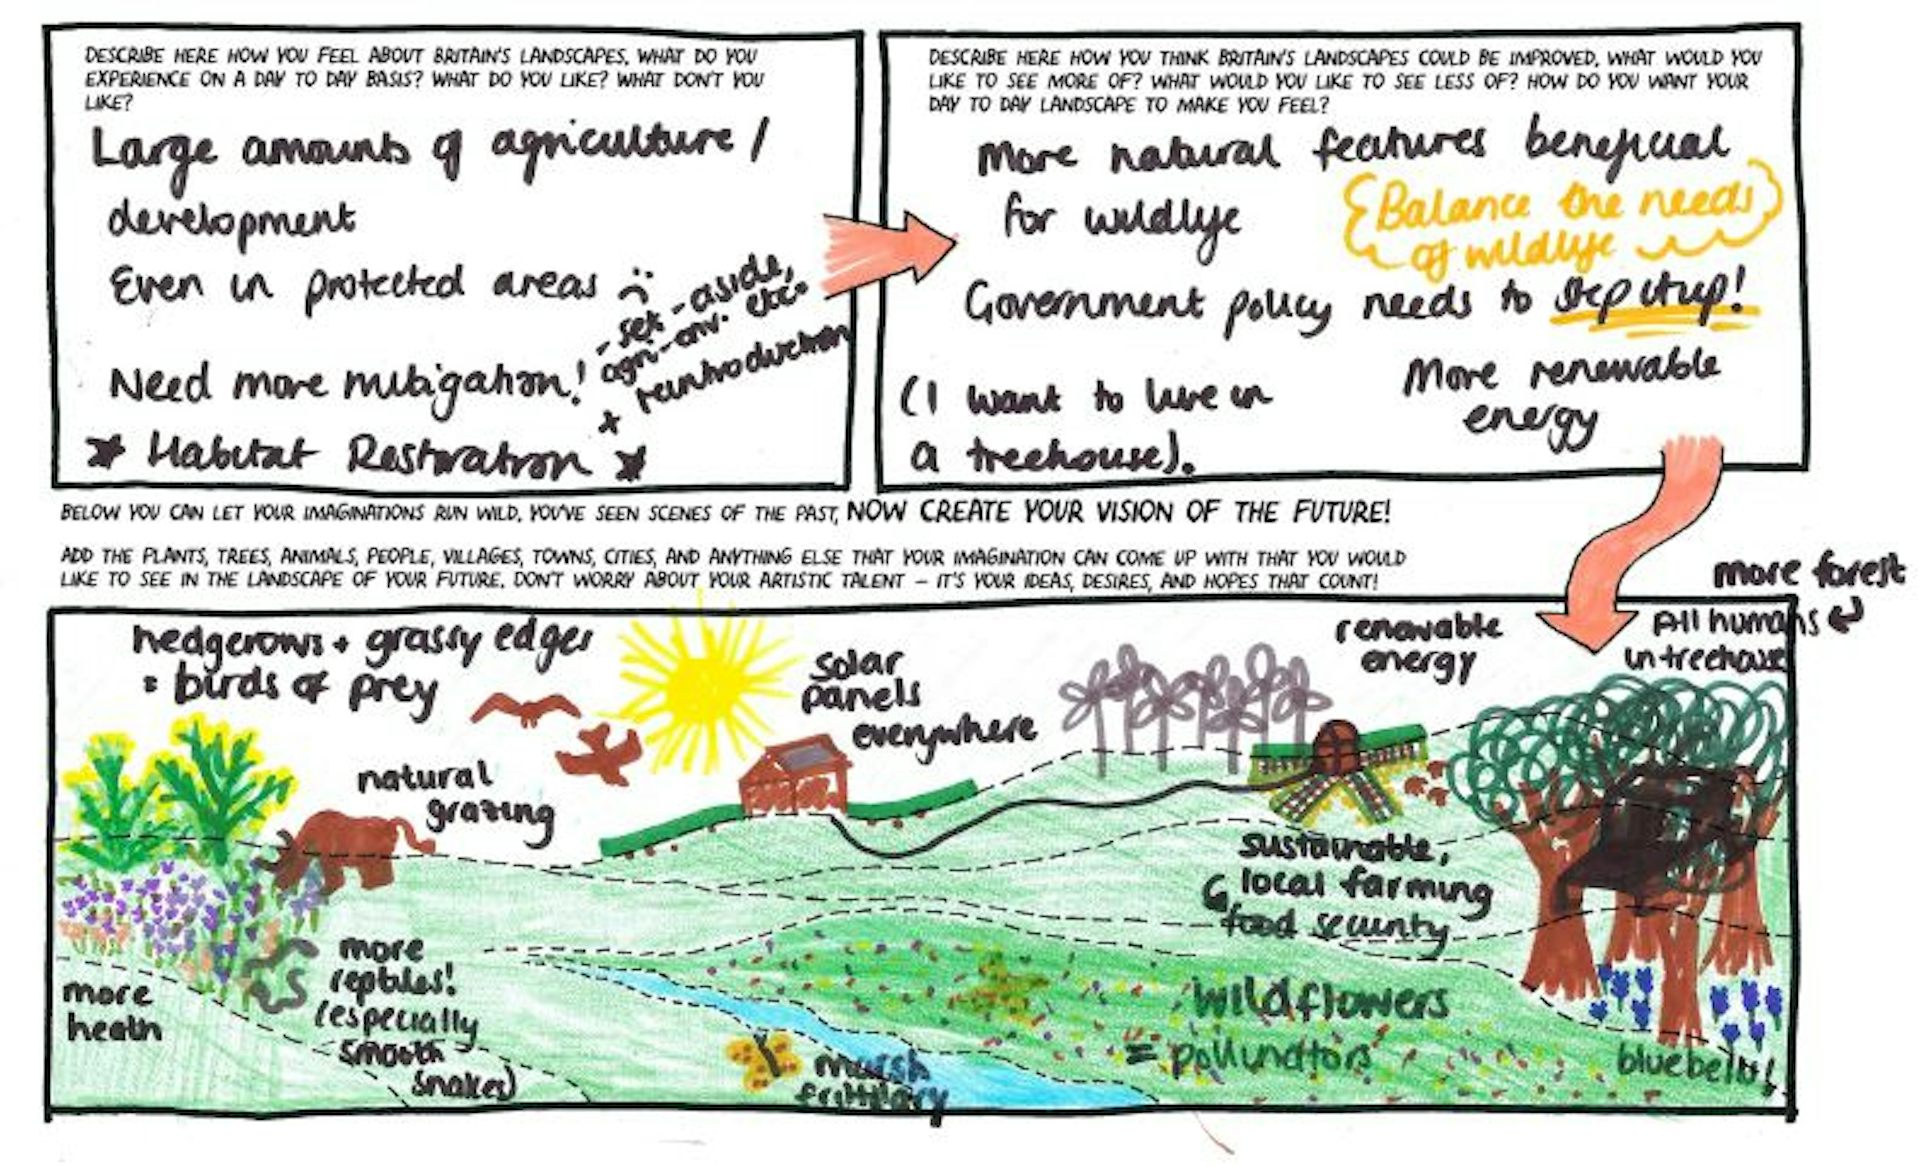 DESCRIBE HERE HOW YOU FEEL ABOUT BRITAIN'S LANDSCAPES. WHAT DO YOU
EXPERIENCE ON A DAY TO DAY BASIS? WHAT DO YOU LIKE? WHAT DON'T YOU
LIKE?
Large amounts of agriculture /
development
Even in protected areas :(
Need more mitigation!
- set-aside,
agri-env. etc.
+ reintroduction
* Habitat Restoration *
DESCRIBE HERE HOW YOU THINK BRITAIN'S LANDSCAPES COULD BE IMPROVED. WHAT WOULD YOU
LIKE TO SEE MORE OF? WHAT WOULD YOU LIKE TO SEE LESS OF? HOW DO YOU WANT YOUR
DAY TO DAY LANDSCAPE TO MAKE YOU FEEL?
More natural features beneficial
for wildlife
Balance the needs
of wildlife
Government policy needs to step it up!
(I want to live in
a treehouse).
More renewable
energy
BELOW YOU CAN LET YOUR IMAGINATIONS RUN WILD. YOU'VE SEEN SCENES OF THE PAST, NOW CREATE YOUR VISION OF THE FUTURE!
ADD THE PLANTS, TREES, ANIMALS, PEOPLE, VILLAGES, TOWNS, CITIES, AND ANYTHING ELSE THAT YOUR IMAGINATION CAN COME UP WITH THAT YOU WOULD
LIKE TO SEE IN THE LANDSCAPE OF YOUR FUTURE. DON'T WORRY ABOUT YOUR ARTISTIC TALENT – IT'S YOUR IDEAS, DESIRES, AND HOPES THAT COUNT!
more forest
All humans
in treehouse
hedgerows + grassy edges
= birds of prey
solar
panels
everywhere
renewable
energy
natural
grazing
sustainable,
local farming
food security
more
reptiles!
(especially
smooth
snakes)
more
heath
marsh
fritillary
wildflowers
= pollinators
bluebells!